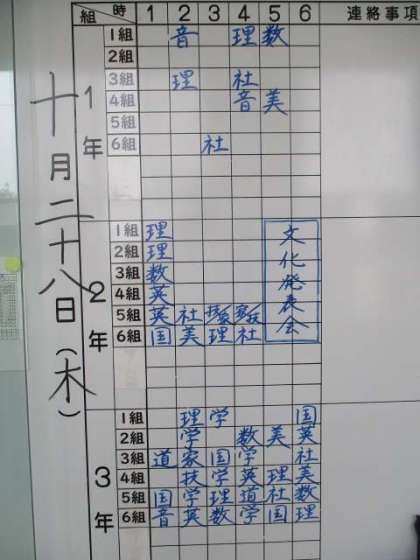 十月二十八日(木)
組 時 1 2 3 4 5 6 連絡事項
1年
1組 音 理 数
2組
3組 理 社
4組 音 美
5組
6組 社
2年
1組 理
2組 理
3組 数
4組 英
5組 英 社
6組 国 美 理 社
文化発表会
3年
1組 理 学 国
2組 学 数 美 英
3組 道 家 国 学 社
4組 技 学 英 理 美
5組 国 学 理 道 社 数
6組 音 英 数 学 国 理